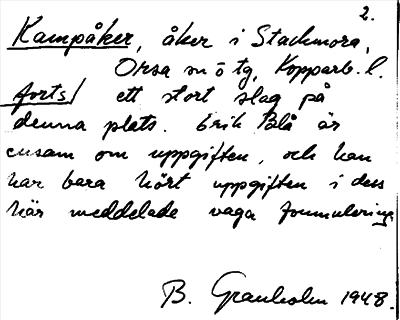 2.
Kampåker, åker i Stackmora,
Orsa sn ö tg, Kopparb. l.
forts/ ett stort slag på
denna plats. Erik Blå är
ensam om uppgiften, och han
har bara hört uppgiften i den
här meddelade vaga formulering.
B. Granholm 1948.